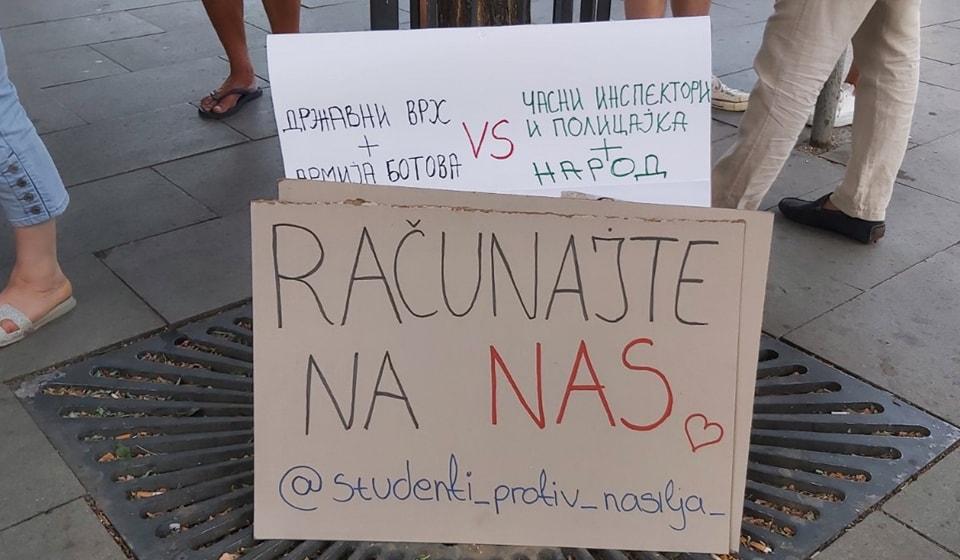 ДРЖАВНИ ВРХ
+
АРМИЈА БОТОВА
VS
ЧАСНИ ИНСПЕКТОРИ
И ПОЛИЦАЈКА
+
НАРОД
RAČUNAJTE
NA NAS
@studenti_protiv_nasilja_